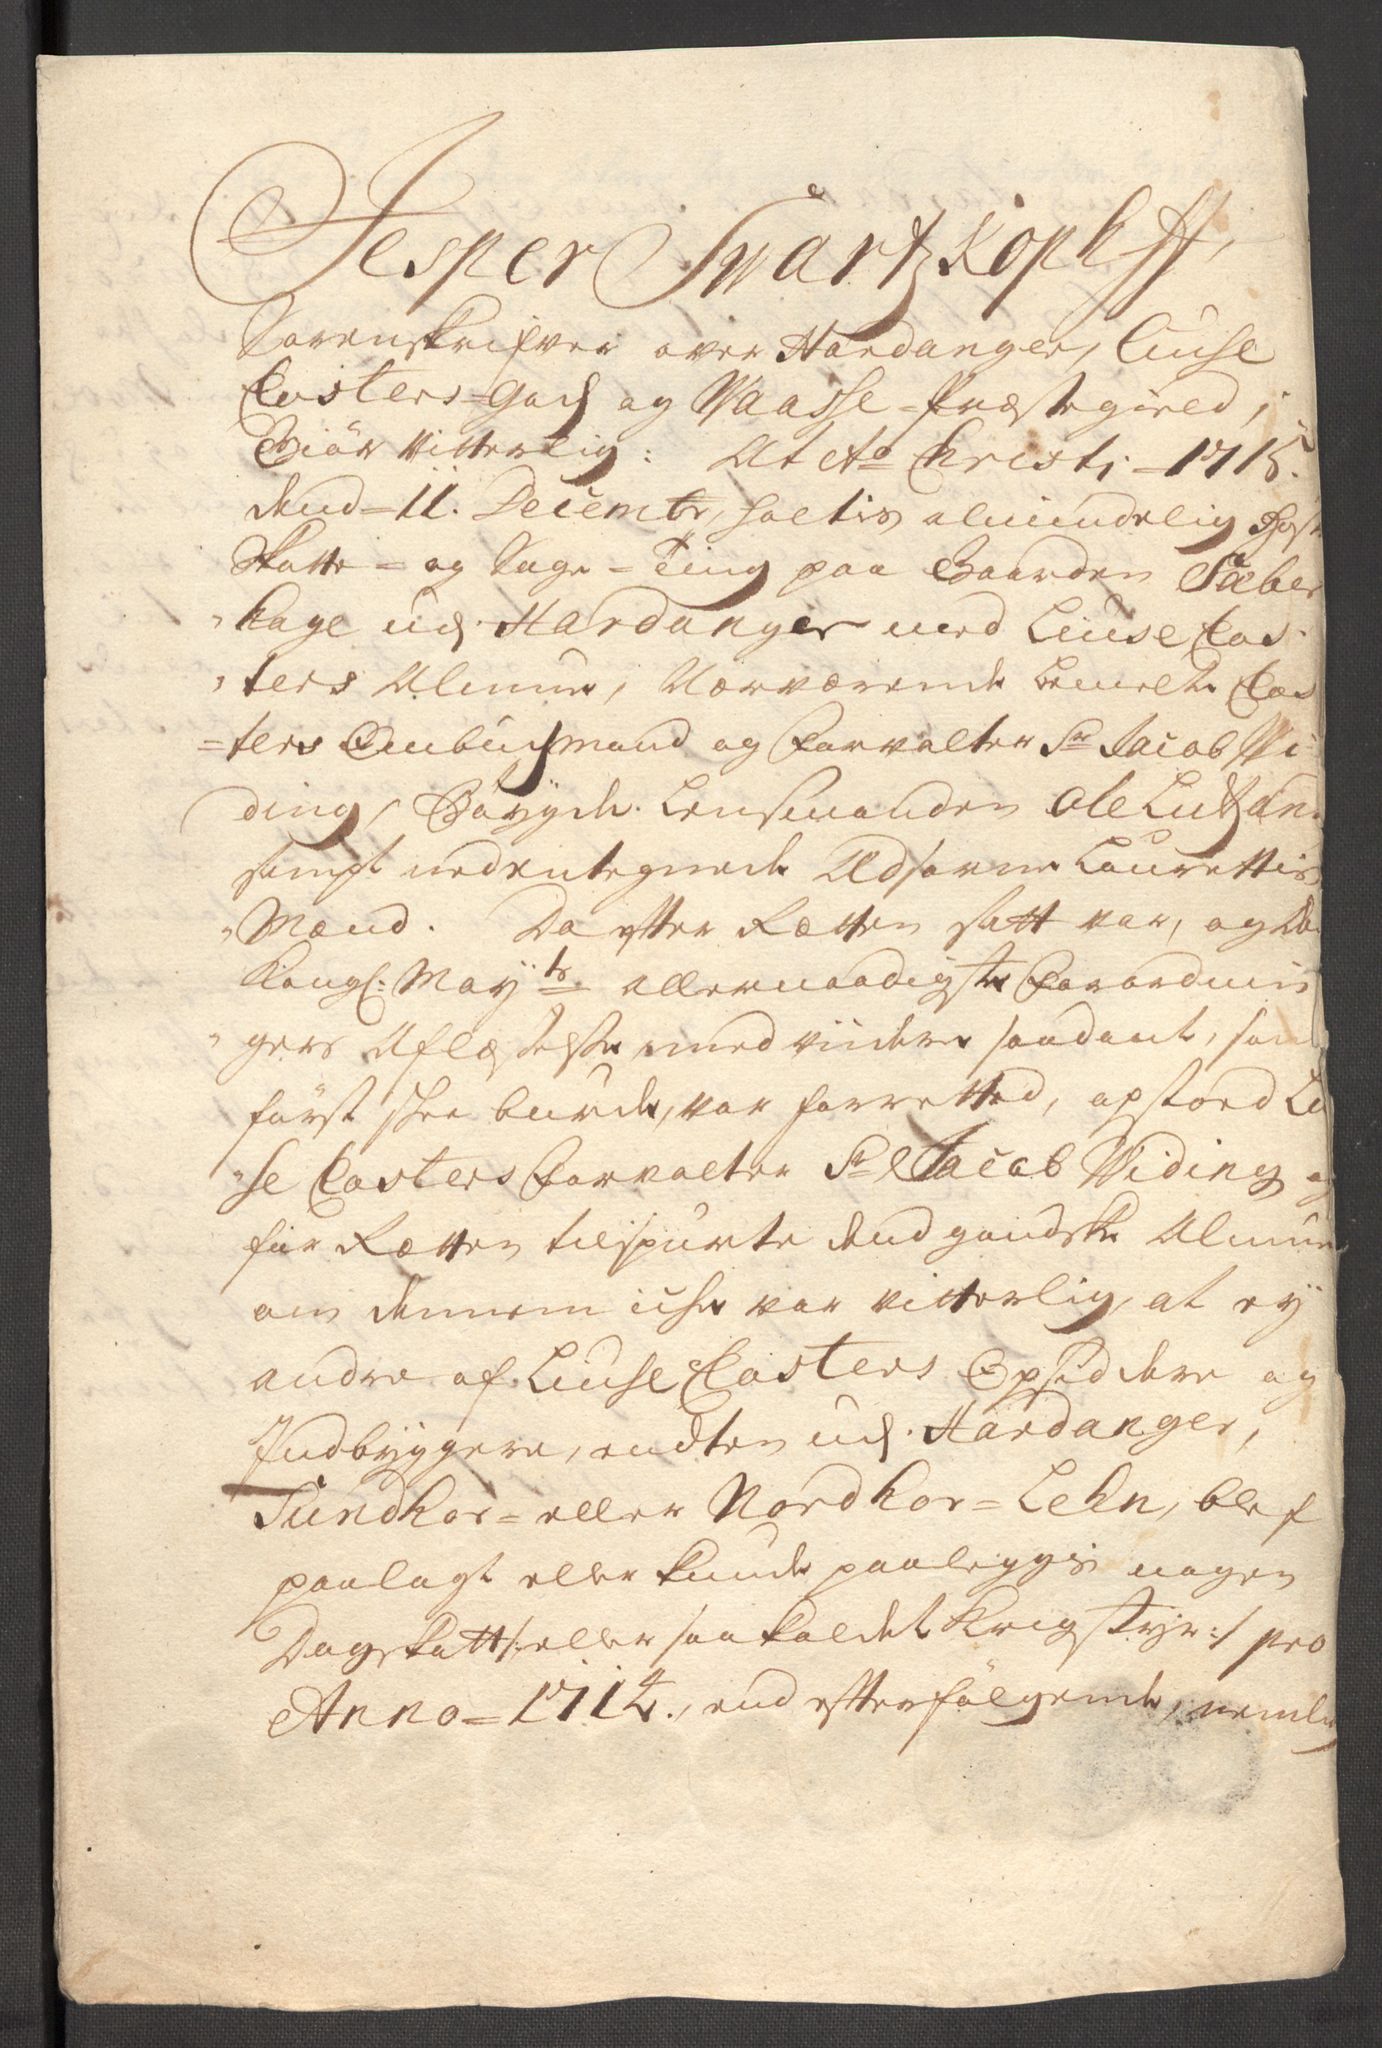 Jesper Swartzkopff,
Sorenskrifver over Hardanger, Liuse
Closters-Gods og Waasse-Præstegield,
Giör Witterlig: At Ao Christi-1715.
dend-11. Decembr, holtis almindelig Høst
Skatte- og Sage-Ting paa Gaarden Sæber
hage udj Hardanger med Liuse Clos-
ters Almue, Nærværende bemelte Clos
ters Ombudsmand og Forvalter Sr Jacob Wi
ding, Bøygde Lensmanden Ole Lutzen
sampt nedentegnede Edsorne Laurettis
Mænd. Da efter Rætten satt var, og De
Kongl: Maÿts allernaadigste Forordnin
gers Aflæselse med viidere saadant, som
først skee burde, var forrettet, opstoed Liu
se Closters Forvalter Sr Jacob Widing og
for Rætten tilspurte dend gandske Almue
om dennem icke var vitterlig, at eÿ
andre af Liuse Closters Opsiddere og
Indbyggere, endten udj Hardanger,
Sundhor- eller Nordhor-Lehn, blef
paalagt eller kunde paaleggis nogen
Dagskatt/: eller saakaldet Krigstyr:/ pro
Anno-1714., end efterfølgende, nemlig